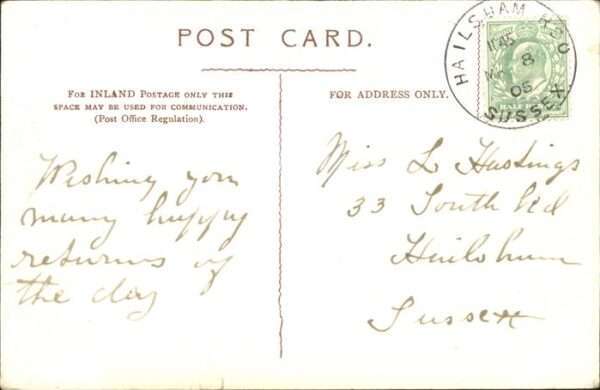 POST CARD.
FOR INLAND POSTAGE ONLY THIS
SPACE MAY BE USED FOR COMMUNICATION.
(Post Office Regulation).
Wishing you
many happy
returns of
the day
FOR ADDRESS ONLY.
HAILSHAM R.S.O
11.45
8
05
SUSSEX
HALF
Miss L Hastings
33 South Rd
Hailsham
Sussex